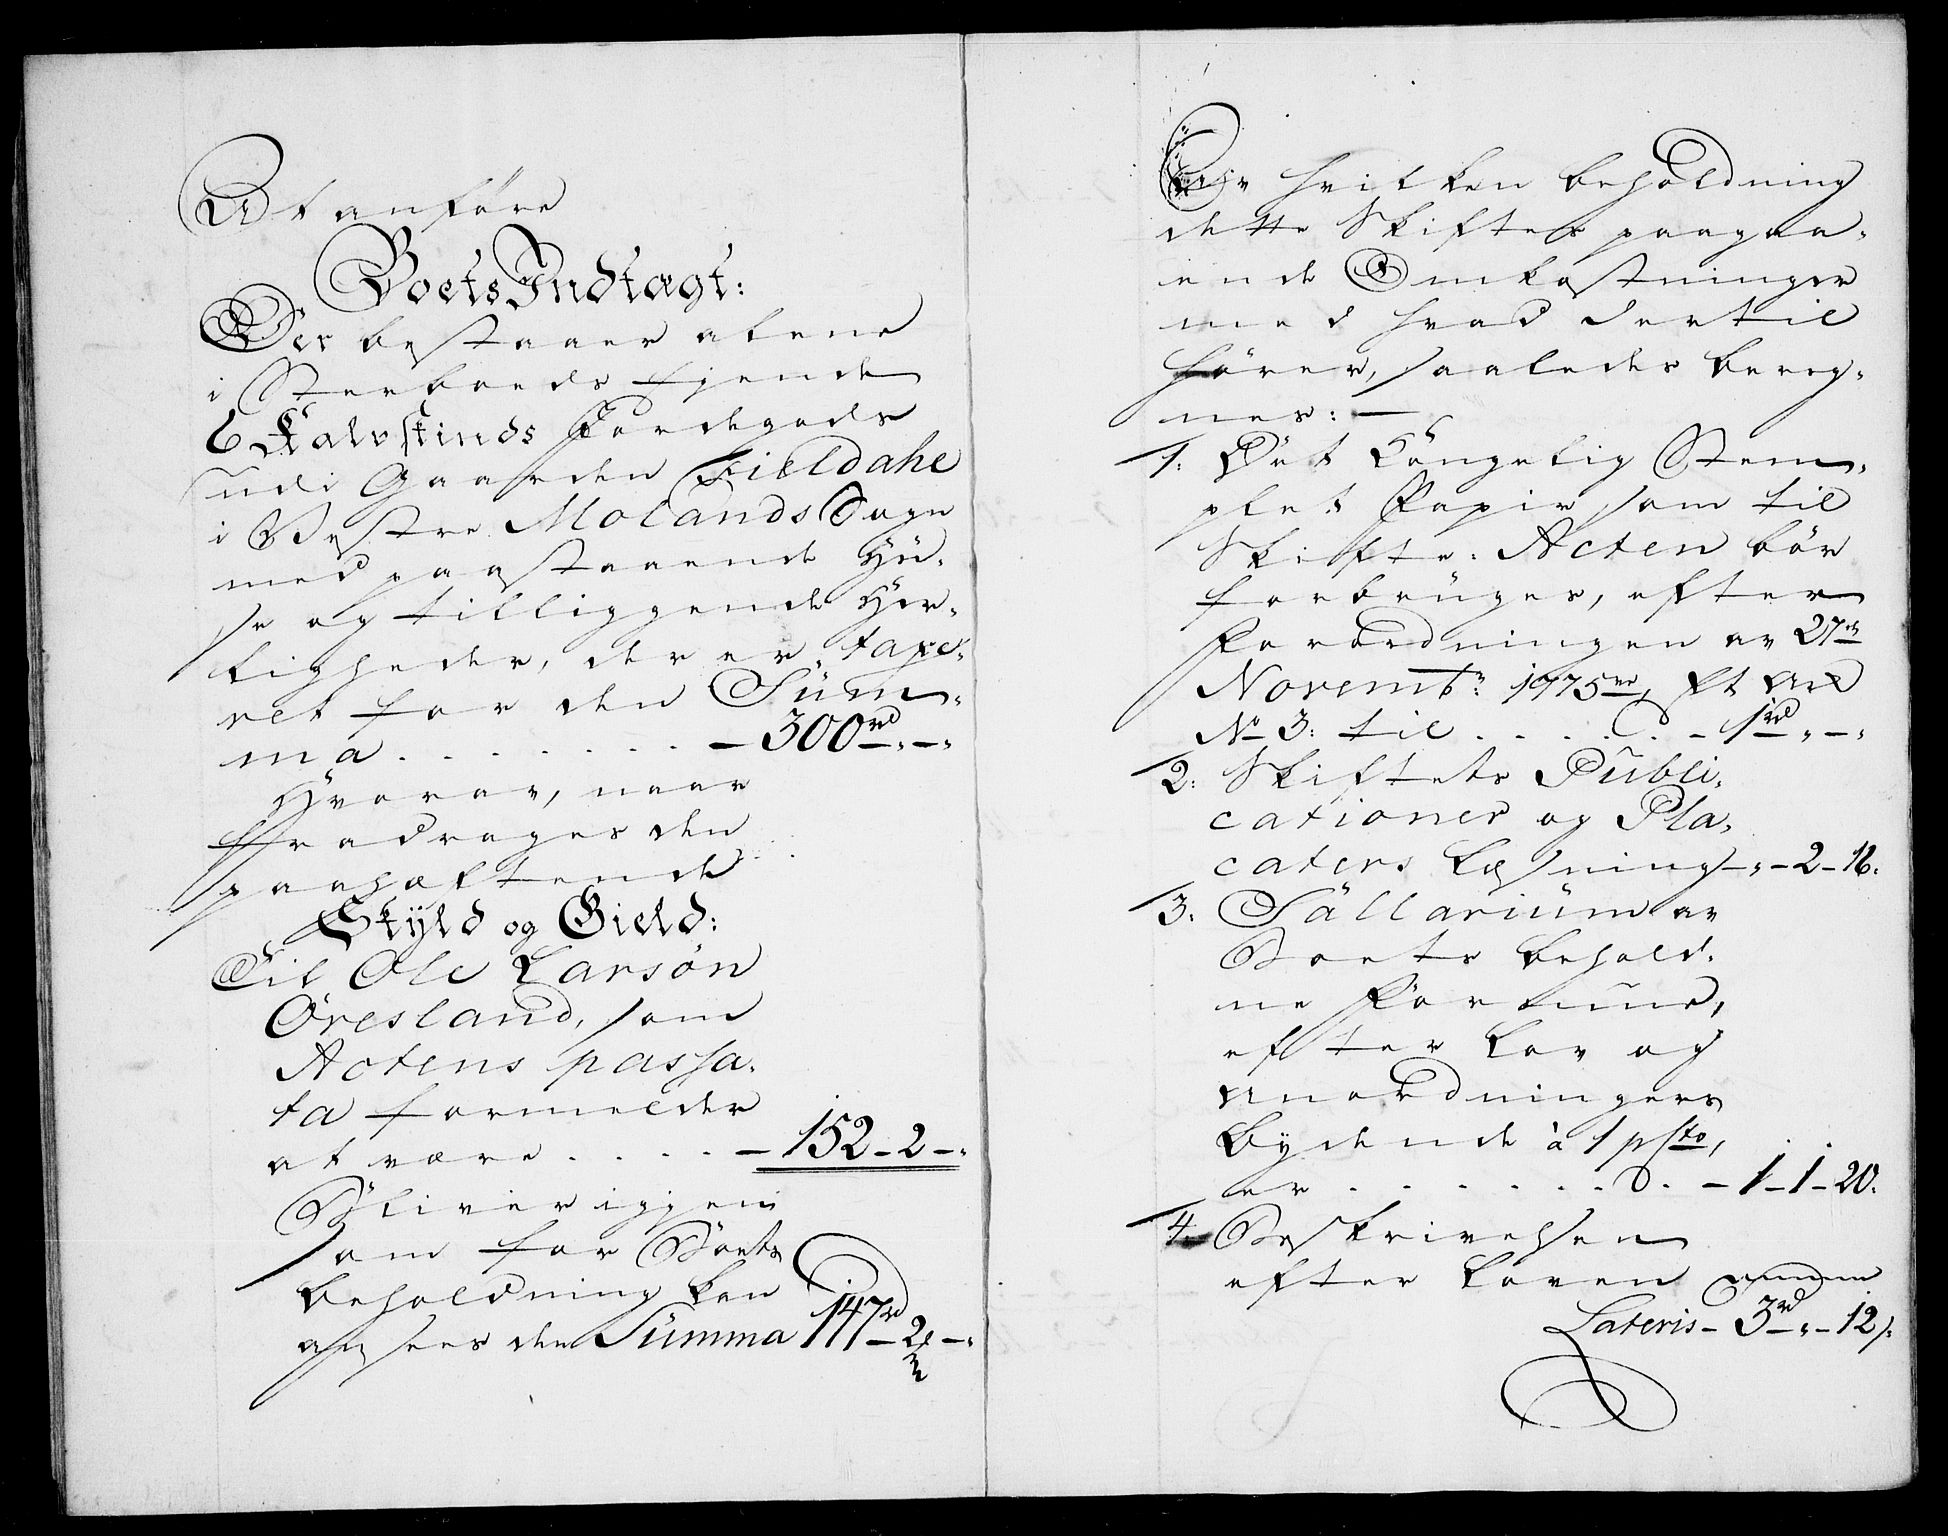 At anføre
Boets Indtægt:
Der bestaaer alene
i Sterboeds Ejende
6 Kalvskinds Jordegods
udi Gaarden Fieldahl
i Vestre Molands Sogn
med paastaaende Hu-
se og tilliggende Her-
ligheder, der er taxe-
ret for den Sum-
ma . . . . . . . — 300 rd „ — „
Hvorav, naar
fradrages den
paahæftende
Skyld og Gield:
Til Ole Larsøn
Øresland, som
Actens passa-
ta formelder
at være . . . . — 152 - 2 — „
Bliver igjen
som for Boets
beholdning kan
ansees den Summa 147 rd — 2 — „
Av hvilken beholdning
dette Skiftes paagaa-
ende Omkostninger
med hvad dertil
hører, saaledes bereg-
nes: —
1: Det Kongelig Stem-
plet Papir som til
Skifte-Acten bør
forbruges, efter
Forordningen av 27de
Novembr: 1775
No 3: til . . . . . — 1 rd „ — „
2: Skiftets Publi-
cationer og Pla-
caters Læsning — „ — 2 — 16.
3: Sallarium av
Boets behold-
ne Formue,
efter Lov og
Anordningers
bydende à 1 p Cto,
er . . . . . . . — 1 — 1 — 20.
4: Beskrivelsen
efter Loven
Lateris — 3 rd — „ — 12 s.